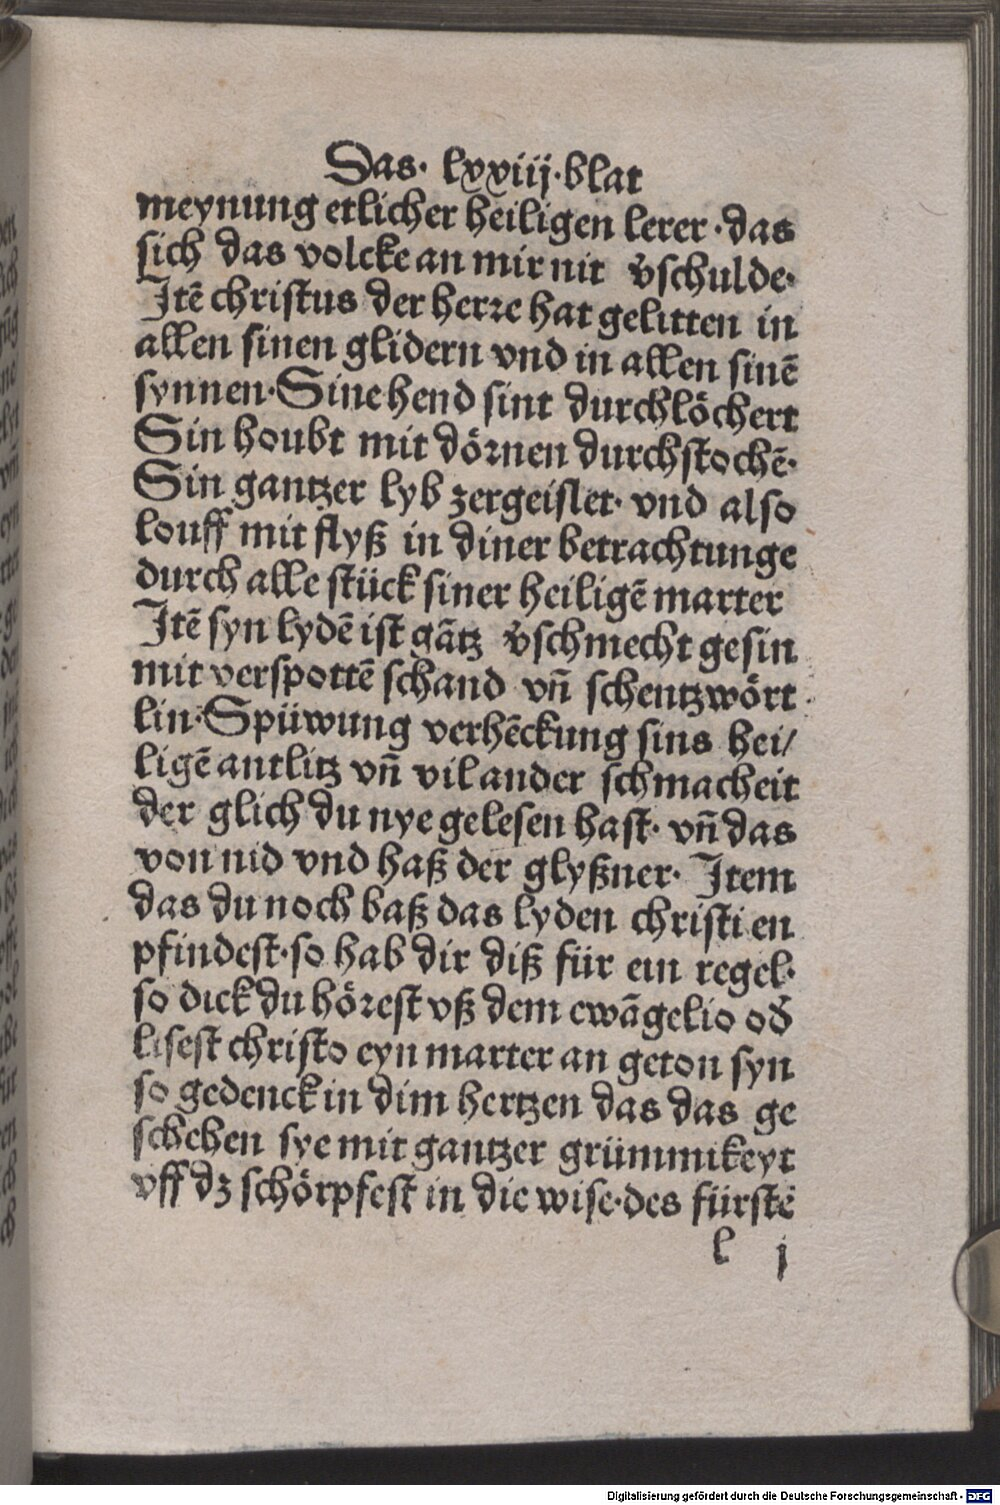 Das· lxxiij·blat
meynung etlicher heiligen lerer·das
sich das volcke an mir nit v̾schulde·
Jtē christus der herꝛe hat gelitten in
allen sinen glidern vnd in allen sinē
synnen·Sine hend sint durchlöchert
Sin houbt mit döꝛnen durchstochē·
Sin gantzer lyb zergeislet· vnd also
louff mit flyß in diner betrachtunge
durch alle stück siner heiligē marter
Jtē syn lydē ist gātz v̾schmecht gesin
mit verspottē schand vn̄ schentzwört
lin·Spüwung verhēckung sins hei/
ligē antlitz vn̄ vil ander schmacheit
der glich du nye gelesen hast· vn̄ das
von nid vnd haß der glyßner· Jtem
das du noch baß das lyden christi en
pfindest·so hab dir diß für ein regel·
so dick du höꝛest vß dem ewāgelio od̾
lisest christo eyn marter an geton syn
so gedenck in dim hertzen das das ge
schehen sye mit gantzer grümmikeyt
vff dz schörpfest in die wise·des fürstē
l j
Digitalisierung gefördert durch die Deutsche Forschungsgemeinschaft - DFG